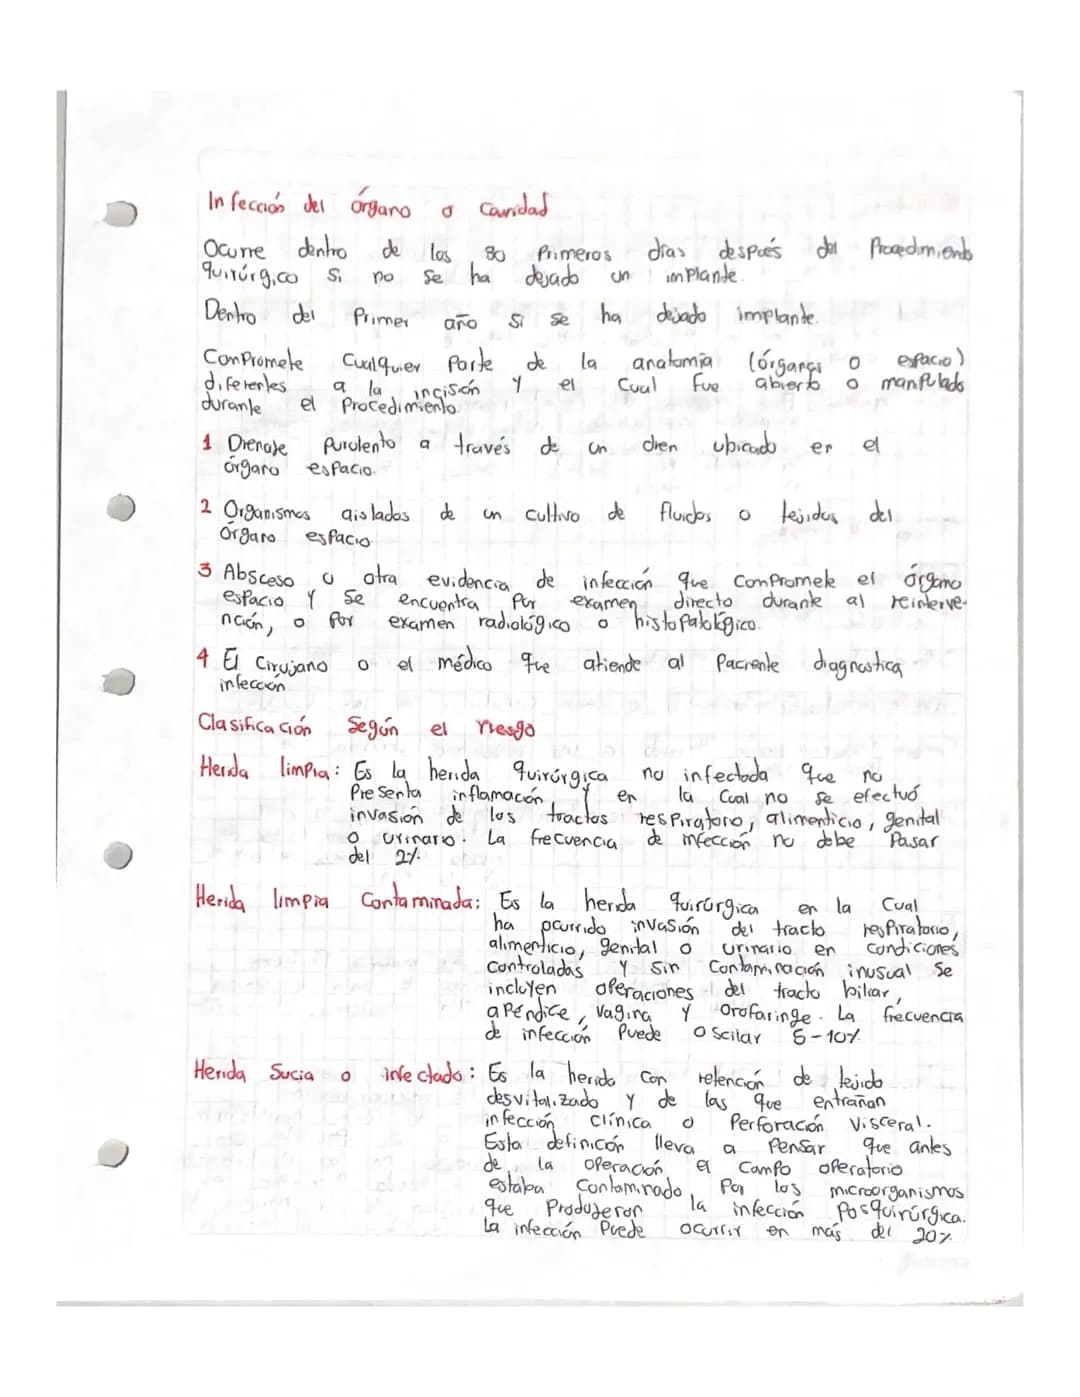 Infección del órgano o cavidad
Ocurre dentro de los 30 Primeros días después del Procedimiento
quirúrgico si no se ha dejado un implante.
Dentro del Primer año si se ha dejado implante.
Compromete Cualquier Parte de la anatomía (órganos o espacio)
diferentes a la incisión y el Cual fue abierto o manipulado
durante el Procedimiento.
1 Drenaje Purulento a través de un dren ubicado en el
órgano espacio.
2 Organismos aislados de un cultivo de fluidos o tejidos del
órgano espacio
3 Absceso u otra evidencia de infección que Compromete el órgano
espacio y se encuentra por examen directo durante al reinterve-
nción, o por examen radiológico o histopatológico.
4 El Cirujano o el médico que atiende al Paciente diagnostica
infección
Clasificación Según el riesgo
Herida limpia: Es la herida quirúrgica no infectada que no
Presenta inflamación y en la Cual no se efectuó
invasión de los tractos respiratorio, alimenticio, genital
o urinario. La frecuencia de infección no debe Pasar
del 2%.
Herida limpia Contaminada: Es la herida quirúrgica en la Cual
ha ocurrido invasión del tracto respiratorio,
alimenticio, genital o urinario en Condiciones
Controladas y sin Contaminación inusual se
incluyen operaciones del tracto biliar,
apéndice, vagina y orofaringe. La frecuencia
de infección Puede oscilar 5-10%
Herida Sucia o infectada: Es la herida con retención de tejido
desvitalizado y de las que entrañan
infección clínica o Perforación Visceral.
Esta definición lleva a Pensar que antes
de la operación el Campo operatorio
estaba Contaminado Por los microorganismos
que Produjeron la infección Posquirúrgica.
La infección Puede ocurrir en más del 20%